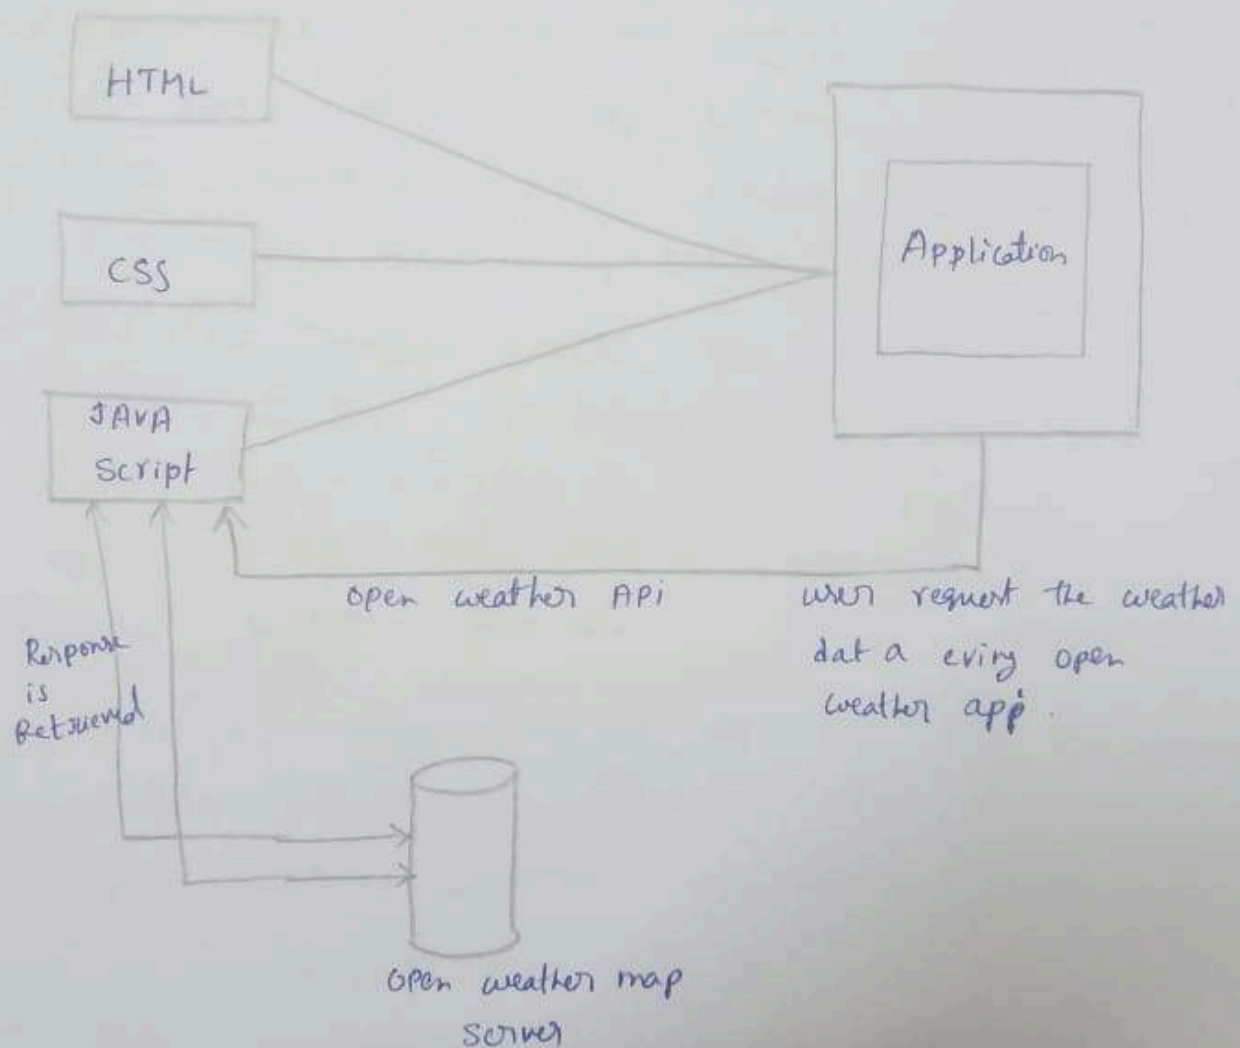 HTML
CSS
JAVA
Script
Application
open weather API
user request the weather
dat a eving open
weather api.
Response
is
Retrieved
open weather map
Server